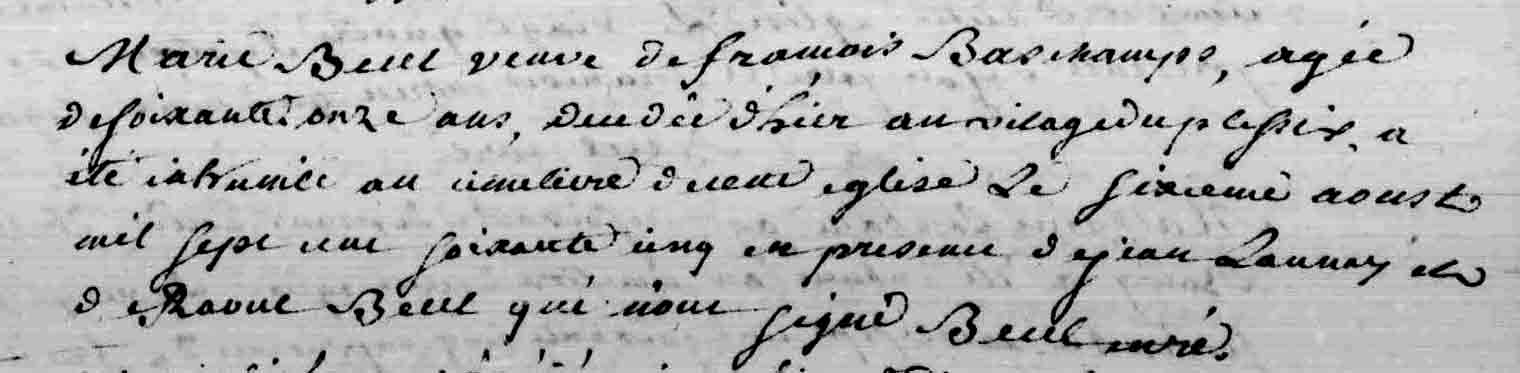 Marie Beul veuve de francois Baschamps, agée
de soixante onze ans, decedée d'hier au vilage du plessix, a
été inhumée au cimetiere de cette eglise Le sixieme aoust
mil sept cent soixante cinq en presence de jean Launay et
de Raoul Beul qui n'ont signé Beul curé.